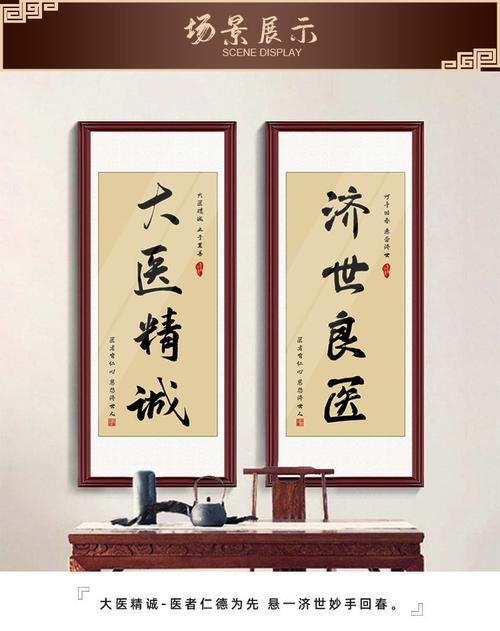 场景展示
SCENE DISPLAY
大医精诚
大医精诚 止于至善
医者有仁心 慈悲济世人
济世良医
妙手回春 悬壶济世
医者有仁心 慈悲济世人
大医精诚-医者仁德为先 悬一济世妙手回春。